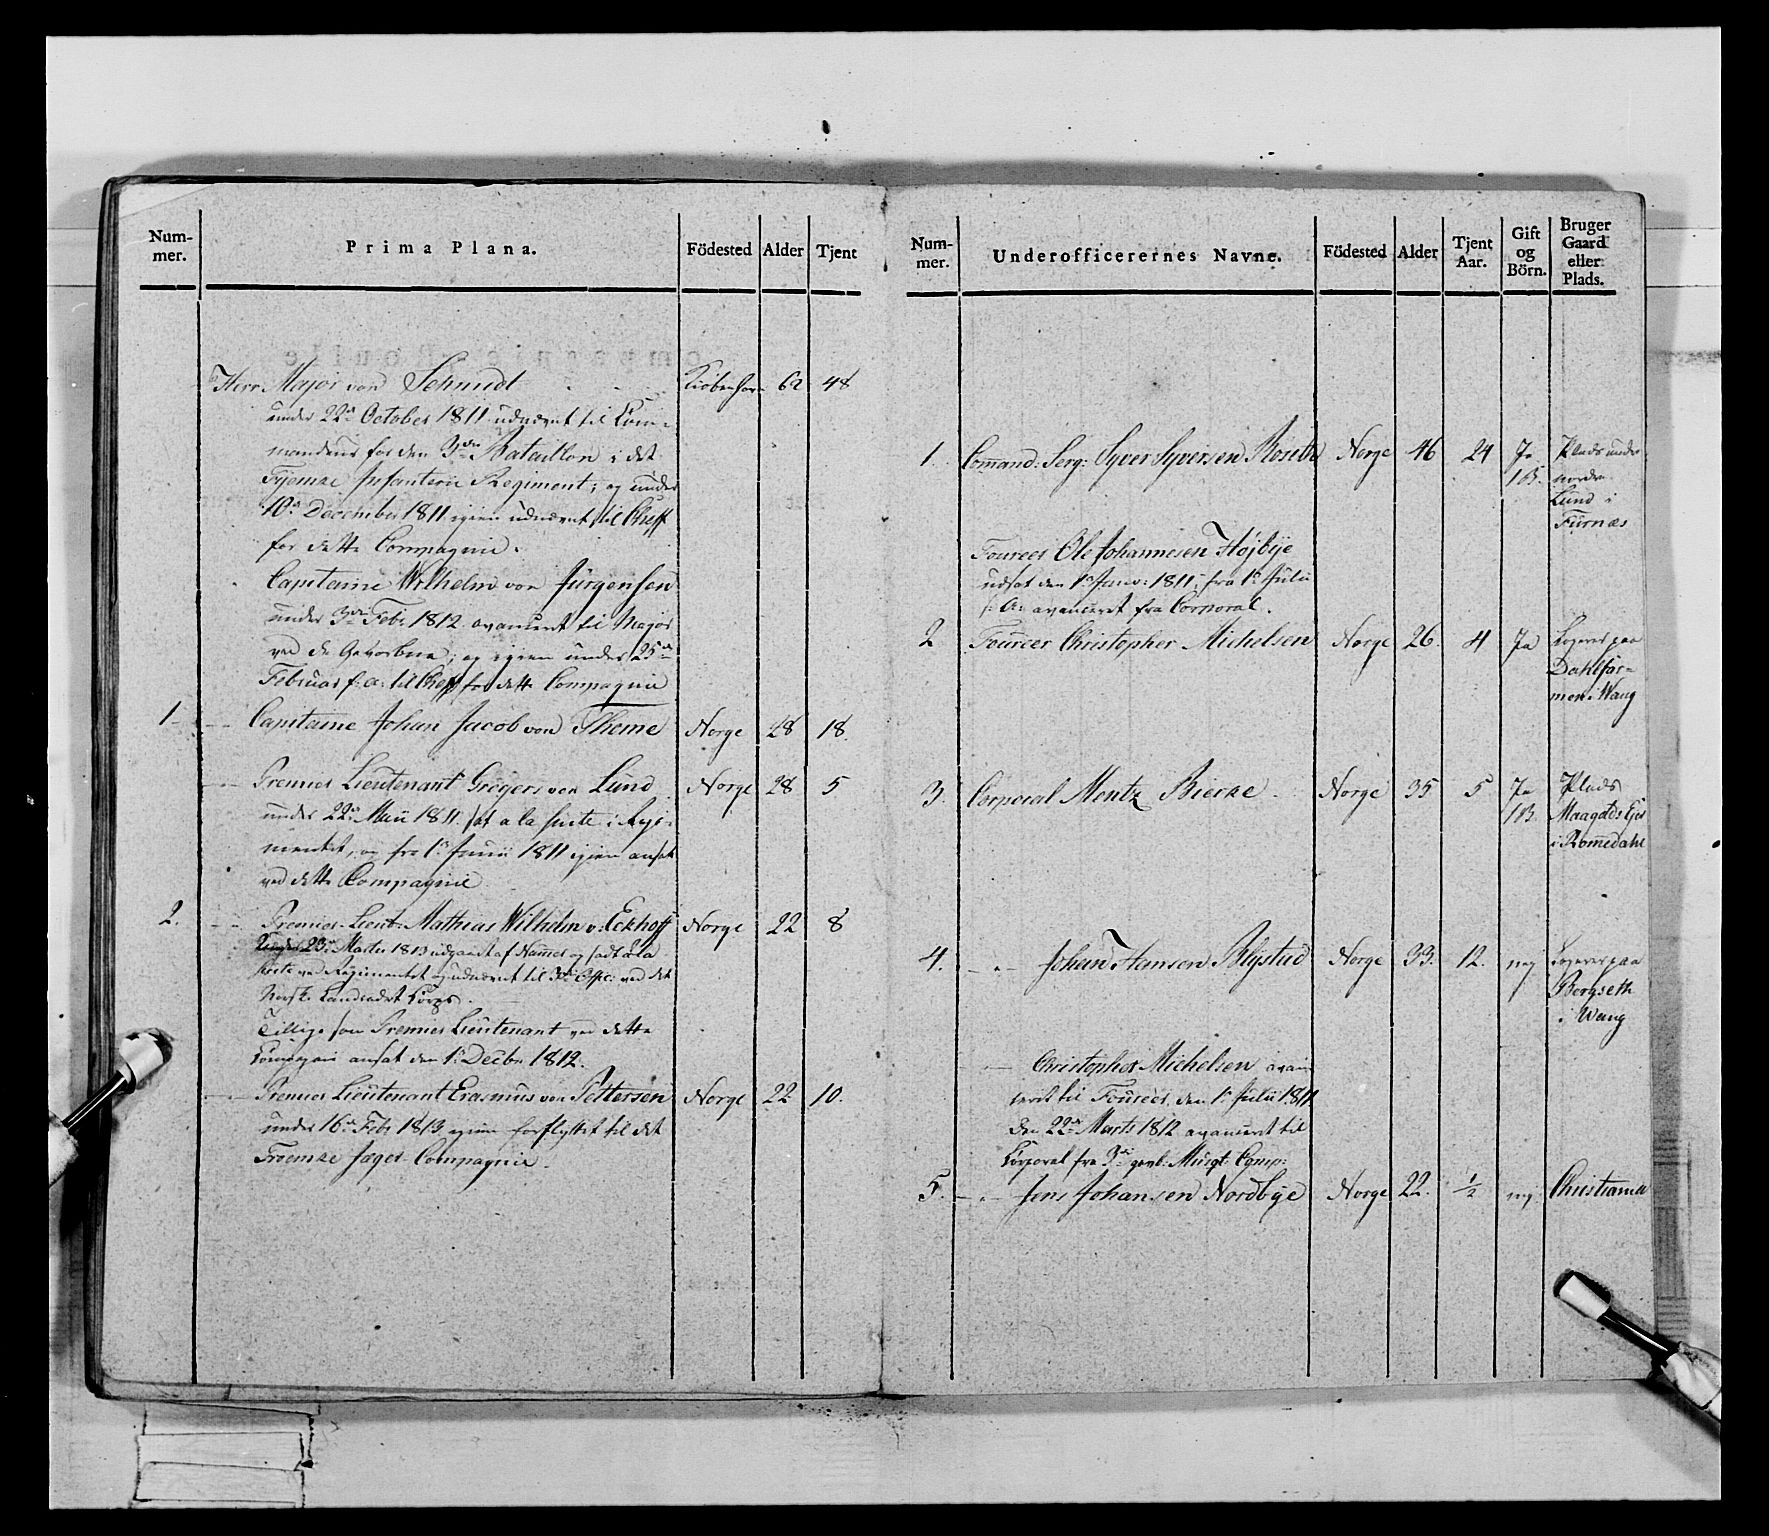 Num-
mer.
Prima Plana.
Födested
Alder
Tjent
Herr Major von Schmidt Kiöbenhavn 62 48
under 22de October 1811 udnævnt til Kom-
mandeur for den 3die Bataillon i det
Infanterie Regiment; og under
10de December 1811 igien udnævnt til Cheff
for dette Compagnie.
Capitaine Wilhelm von Jürgensen
under 3die Febr 1812 avanceret til Major
ved de Gevorbne; og igien under 25de
Februar s: a: til Cheff for dette Compagnie
1 - Capitaine Johan Jacob von Theme Norge 48 18.
Premier Lieutenant Gregers von Lund Norge 28 5
under 22de Maii 1811 sat a la suite i Regi-
mentet, og fra 1ste Junii 1811 igien ansat
ved dette Compagnie
2. Premier Lieut: Mathias Wilhelm v: Eckhoff Norge 22 8
Under 23de Martz 1813 udgaaet af Nummer og sadt a la
suite ved Regimentet og udnævnt til ved det
Norske Landcadet Corps.
Tillige som Premier Lieutenant ved dette
Compagni ansat den 1ste Decbr 1812.
Premier Lieutenant Erasmus von Pettersen Norge 22 10.
under 16de Febr 1813 igien forflyttet til det
Jæger Compagnie.
Num-
mer.
Underofficerernes Navne.
Födested
Alder
Tjent
Aar.
Gift
og
Börn.
Bruger
Gaard
eller
Plads.
1. Comand: Serg: Syver Syversen Norge 46 24 Ja Plads under
1B. nordre
Lund i
Furnæs
Foureer Ole Johannesen Højbye
udsat den 1ste Janv: 1811; fra 1ste Julii
s: a: avanceret fra Corporal.
2 Foureer Christopher Michelsen Norge 26. 4 Ja Logerer paa
Dahlfar-
men i Wang
3. Corporal Mentz Bierke. Norge 35 5 Ja Plads
1B. Ejer
i Romedahl
4. — „ — Johan Hansen Blystad Norge 33. 12. nej Logerer paa
Bergseth
i Wang
— Christopher Michelsen avan-
ceret til Foureer den 1ste Julii 1811
den 22de Marts 1812 avanceret til
Corporal fra 3die gevb: Musqt: Comp:
5. — „ — Jens Johansen Nordbye Norge 22. 1/2 nej Christiania